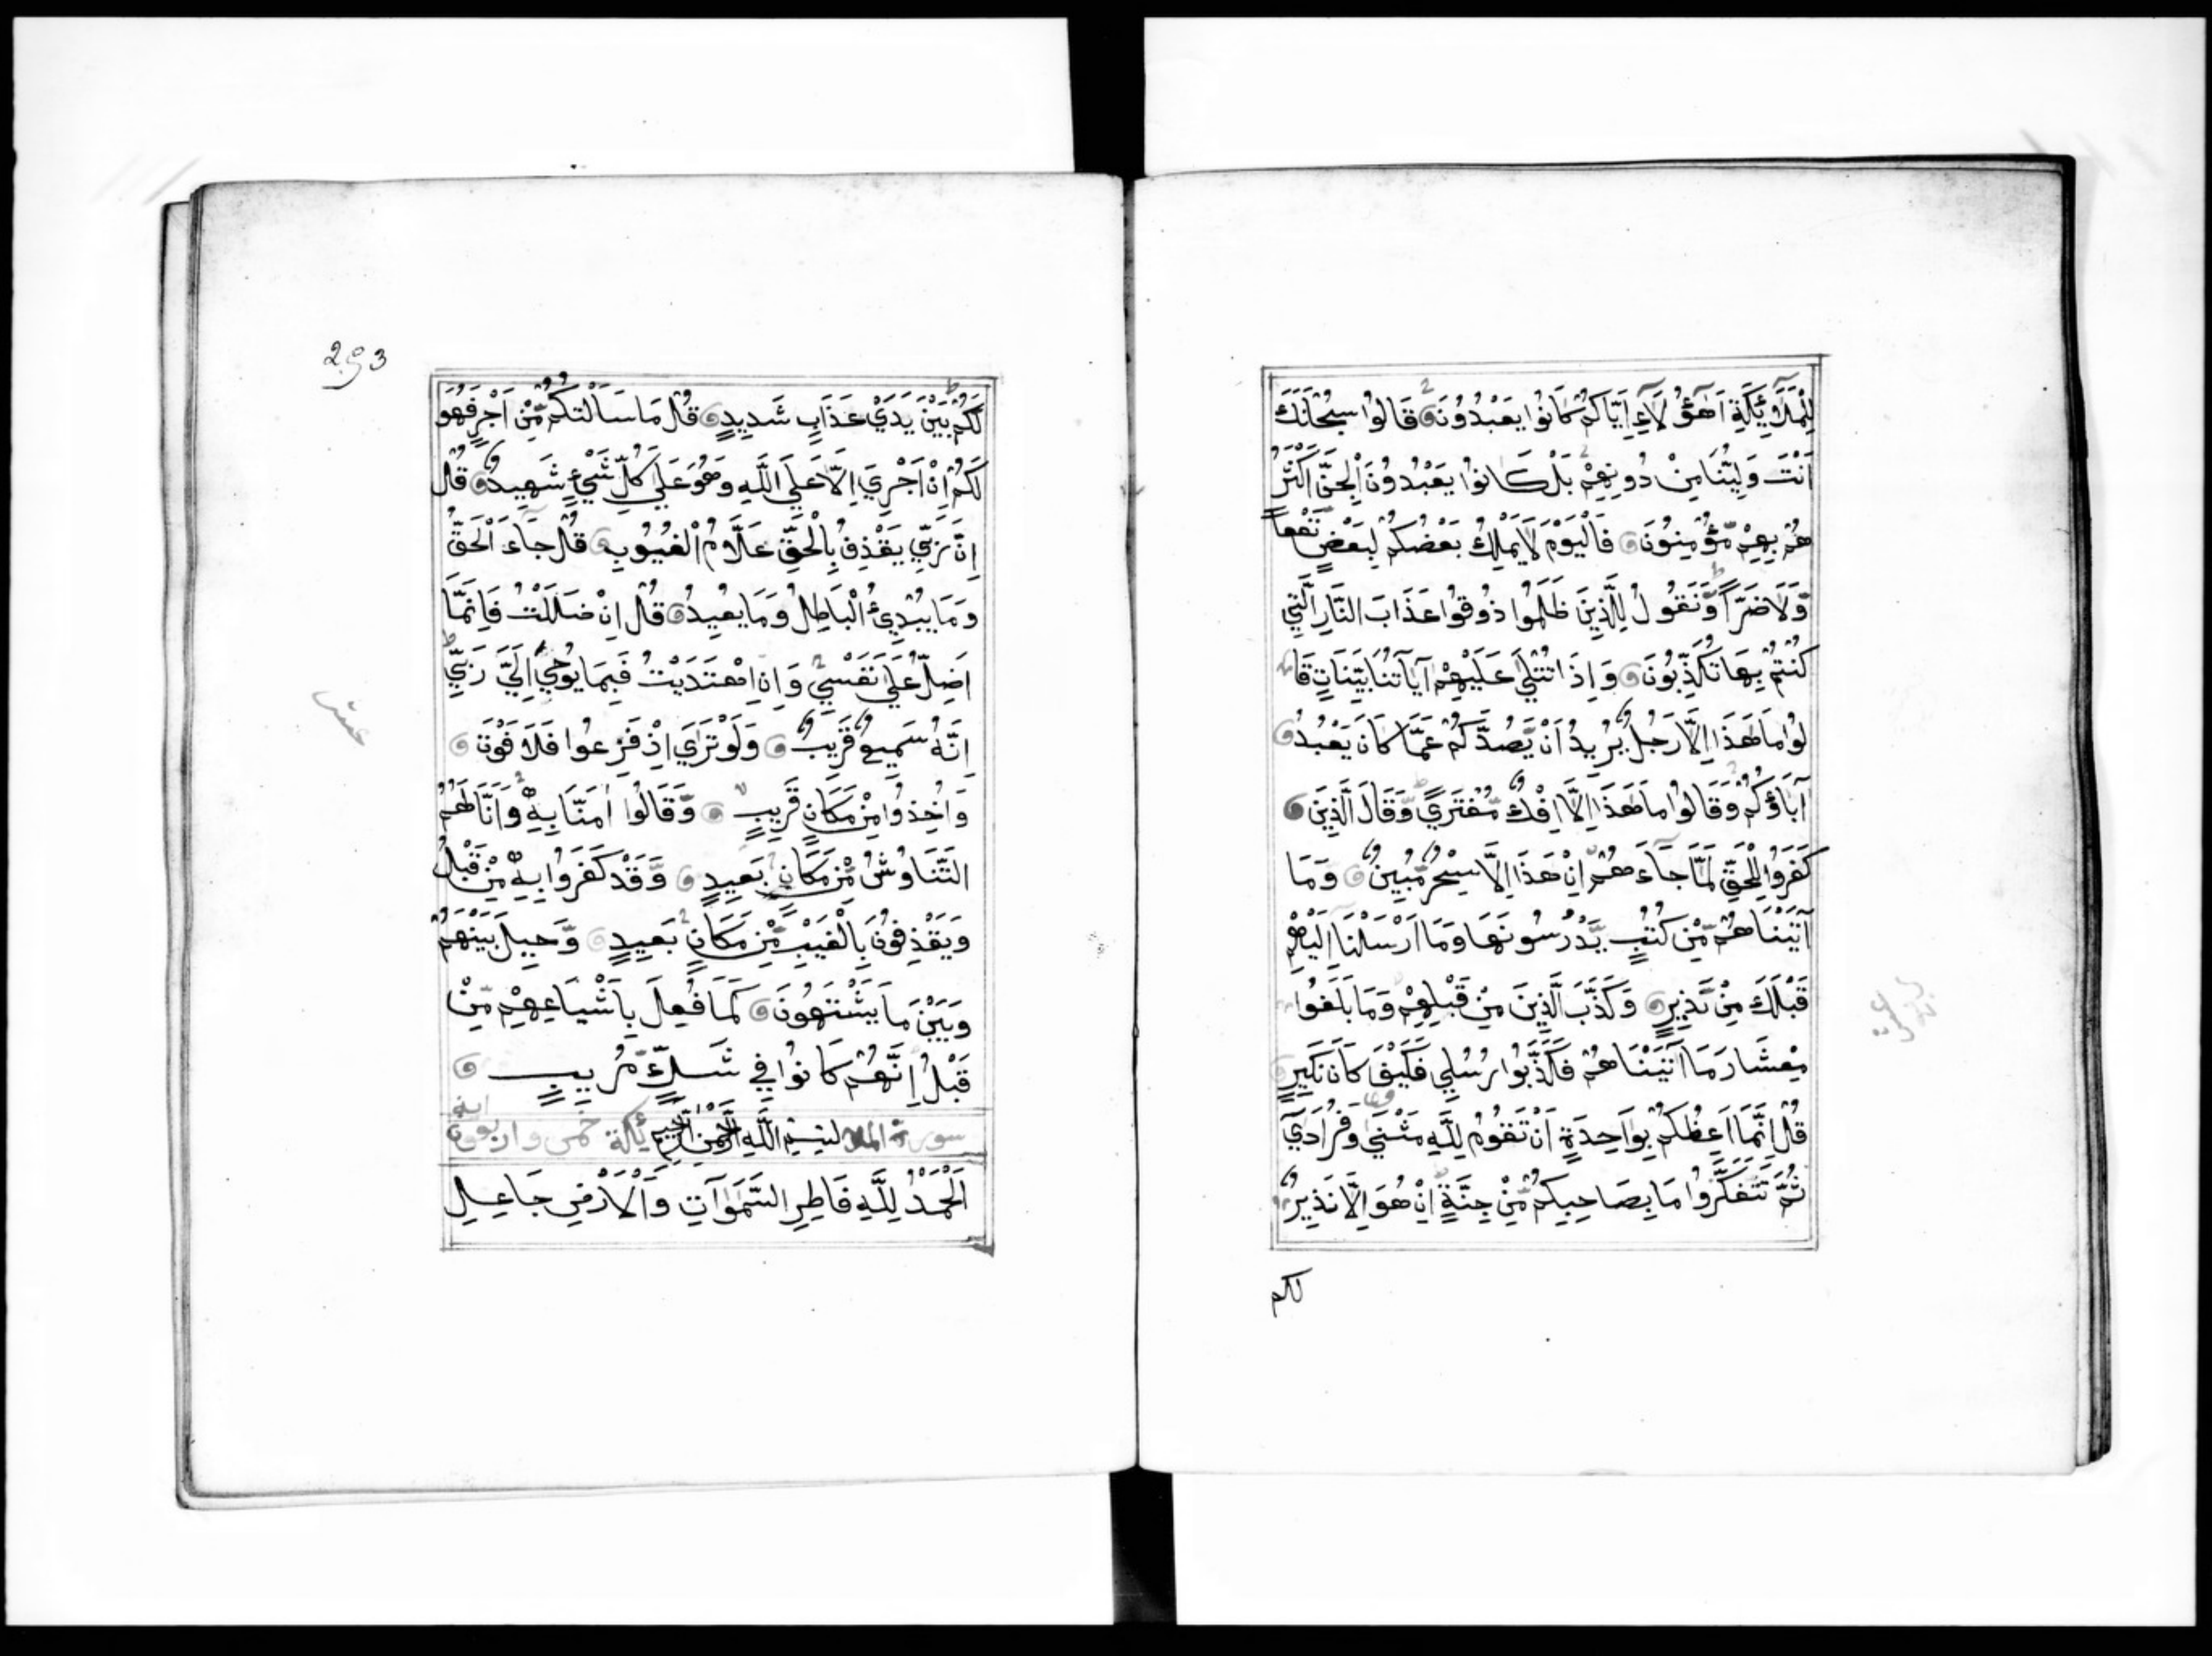 لِلْمَلَآئِكَةِ اَهٰٓؤُلَآءِ اِيَّاكُمْ كَانُوا يَعْبُدُونَ قَالُوا سُبْحَانَكَ
اَنْتَ وَلِيُّنَا مِنْ دُونِهِمْ بَلْ كَانُوا يَعْبُدُونَ الْجِنَّ اَكْثَرُ
هُمْ بِهِمْ مُّؤْمِنُونَ فَالْيَوْمَ لَا يَمْلِكُ بَعْضُكُمْ لِبَعْضٍ نَّفْعاً
وَّلَا ضَرّاً وَّنَقُولُ لِلَّذِينَ ظَلَمُوا ذُوقُوا عَذَابَ النَّارِ الَّتِي
كُنْتُمْ بِهَا تُكَذِّبُونَ وَاِذَا تُتْلَى عَلَيْهِمْ آيَاتُنَا بَيِّنَاتٍ قَا
لُوا مَا هَذَا اِلَّا رَجُلٌ يُرِيدُ اَنْ يَّصُدَّكُمْ عَمَّا كَانَ يَعْبُدُ
آبَاؤُكُمْ وَقَالُوا مَا هَذَا اِلَّا اِفْكٌ مُّفْتَرًى وَّقَالَ الَّذِينَ
كَفَرُوا لِلْحَقِّ لَمَّا جَآءَهُمْ اِنْ هَذَا اِلَّا سِحْرٌ مُّبِينٌ وَمَا
آتَيْنَاهُمْ مِّنْ كُتُبٍ يَّدْرُسُونَهَا وَمَا اَرْسَلْنَا اِلَيْهِمْ
قَبْلَكَ مِنْ نَّذِيرٍ وَكَذَّبَ الَّذِينَ مِنْ قَبْلِهِمْ وَمَا بَلَغُوا
مِعْشَارَ مَا آتَيْنَاهُمْ فَكَذَّبُوا رُسُلِي فَكَيْفَ كَانَ نَكِيرِ
قُلْ اِنَّمَا اَعِظُكُمْ بِوَاحِدَةٍ اَنْ تَقُومُوا لِلَّهِ مَثْنَى وَفُرَادَى
ثُمَّ تَتَفَكَّرُوا مَا بِصَاحِبِكُمْ مِّنْ جِنَّةٍ اِنْ هُوَ اِلَّا نَذِيرٌ
لكم
293
لَكُمْ بَيْنَ يَدَيْ عَذَابٍ شَدِيدٍ قُلْ مَا سَاَلْتُكُمْ مِّنْ اَجْرٍ فَهُوَ
لَكُمْ اِنْ اَجْرِيَ اِلَّا عَلَى اللَّهِ وَهُوَ عَلَى كُلِّ شَيْءٍ شَهِيدٌ قُلْ
اِنَّ رَبِّي يَقْذِفُ بِالْحَقِّ عَلَّامُ الْغُيُوبِ قُلْ جَآءَ الْحَقُّ
وَمَا يُبْدِئُ الْبَاطِلُ وَمَا يُعِيدُ قُلْ اِنْ ضَلَلْتُ فَاِنَّمَا
اَضِلُّ عَلَى نَفْسِي وَاِنِ اهْتَدَيْتُ فَبِمَا يُوحِي اِلَيَّ رَبِّي
اِنَّهُ سَمِيعٌ قَرِيبٌ وَلَوْ تَرَى اِذْ فَزِعُوا فَلَا فَوْتَ
وَاُخِذُوا مِنْ مَكَانٍ قَرِيبٍ وَّقَالُوا اٰمَنَّا بِهِ وَاَنَّا لَهُمُ
التَّنَاوُشُ مِنْ مَكَانٍ بَعِيدٍ وَّقَدْ كَفَرُوا بِهِ مِنْ قَبْلُ
وَيَقْذِفُونَ بِالْغَيْبِ مِنْ مَكَانٍ بَعِيدٍ وَّحِيلَ بَيْنَهُمْ
وَبَيْنَ مَا يَشْتَهُونَ كَمَا فُعِلَ بِاَشْيَاعِهِمْ مِّنْ
قَبْلُ اِنَّهُمْ كَانُوا فِي شَكٍّ مُّرِيبٍ
سورة الملا بِسْمِ اللَّهِ الرَّحْمٰنِ الرَّحِيمِ ئكة خمس واربعون اية
اَلْحَمْدُ لِلَّهِ فَاطِرِ السَّمٰوَاتِ وَالْاَرْضِ جَاعِلِ
عشر